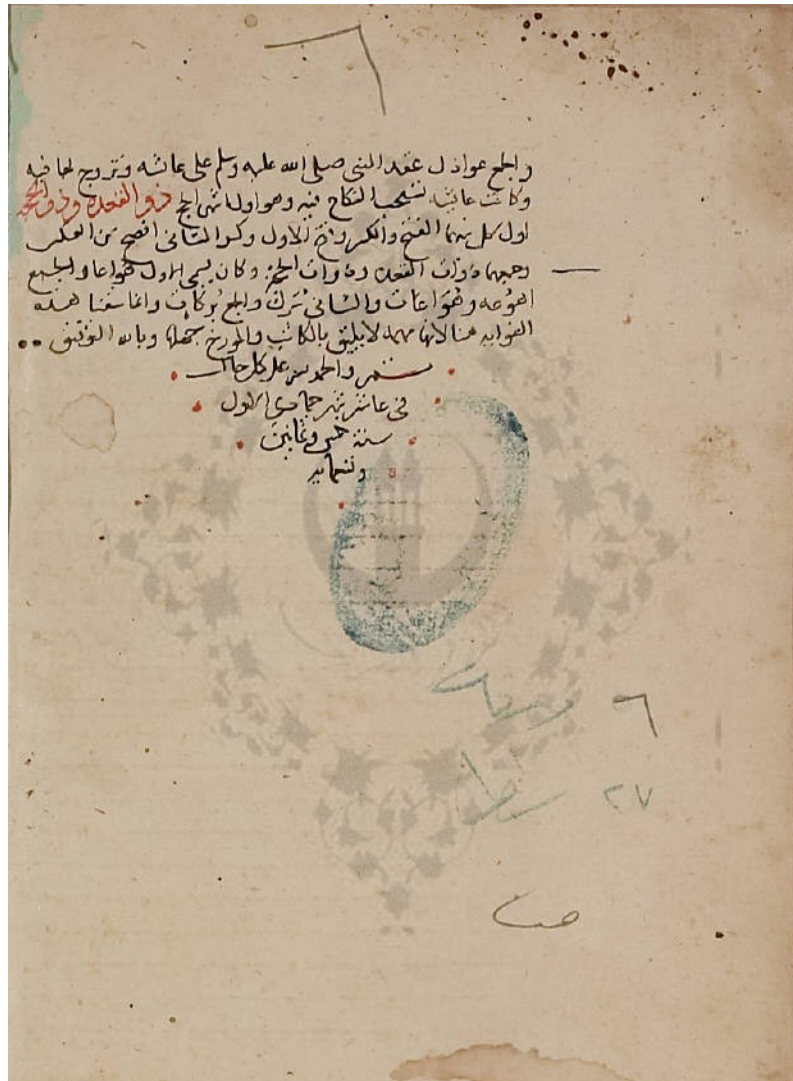 ٦
والجمع عواذل عقد النبي صلى الله عليه وسلم على عائشه وتزوج بها فيه
وكانت عائشه تستحب النكاح فيه وهو اول اشهر الحج ذو القعده وذو الحجه
اول كل منهما الفتح والكسر وفتح الاول وكسر الثاني افصح من العكس
وجمعهما ذوات القعده وذوات الحجة وكان يسمى الاول هواعا والجمع
اهوعه وهواعات والثاني بُرَك والجمع بُركات وانما سقنا هذه
الفوايد هنا لانها مهمه لا يليق بالكاتب والمورخ جهلها وبالله التوفيق
والحمد لله على كل حال
في عاشر شهر جمادي الاول
سنة خمس وثمانين
وتسعمايه
٦
٢٧